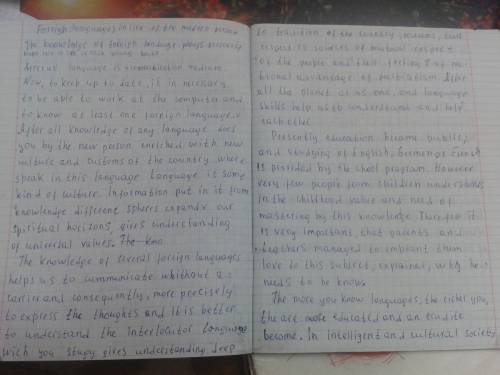 Foreign languages in life of the modern person
The knowledge of foreign language plays presently
huge role in life of each young
Special language is communication medium.
Now, to keep up to date, it is necessary
to be able to work at the computer and
to know at least one foreign language.
After all knowledge of any language does
you by the new person enriched with new
culture and customs of the country where
speak in this language. Language is some
kind of culture. Information put in it from
knowledge different spheres expands our
spiritual horizons, gives understanding
of universal values. The kno
The knowledge of several foreign languages
helps us to communicate whithout a
carrier and consequently, more precisely
to express the thoughts and it is better
to understand the interlocutor. Language
wich you study gives understanding deep
to tradition of the country, means, cult
respect is sources of mutual respect
of the people and full feeling of na
tional advantage of patriotism. After
all the planet at us one, and language
skills help us to understand and help
each other
Presently education became public,
and studying of English, Germany, French
is provided by the school program. However
very few people from children understands
in the childhood value and need of
mastering by this knowledge. Therefore it
is very important that parents and
teachers managed to implant them
love to this subject, explained, why he
needs to be known
The more you know languages, the richer you,
the are more educated and an erudite
become. In intelligent and cultural society